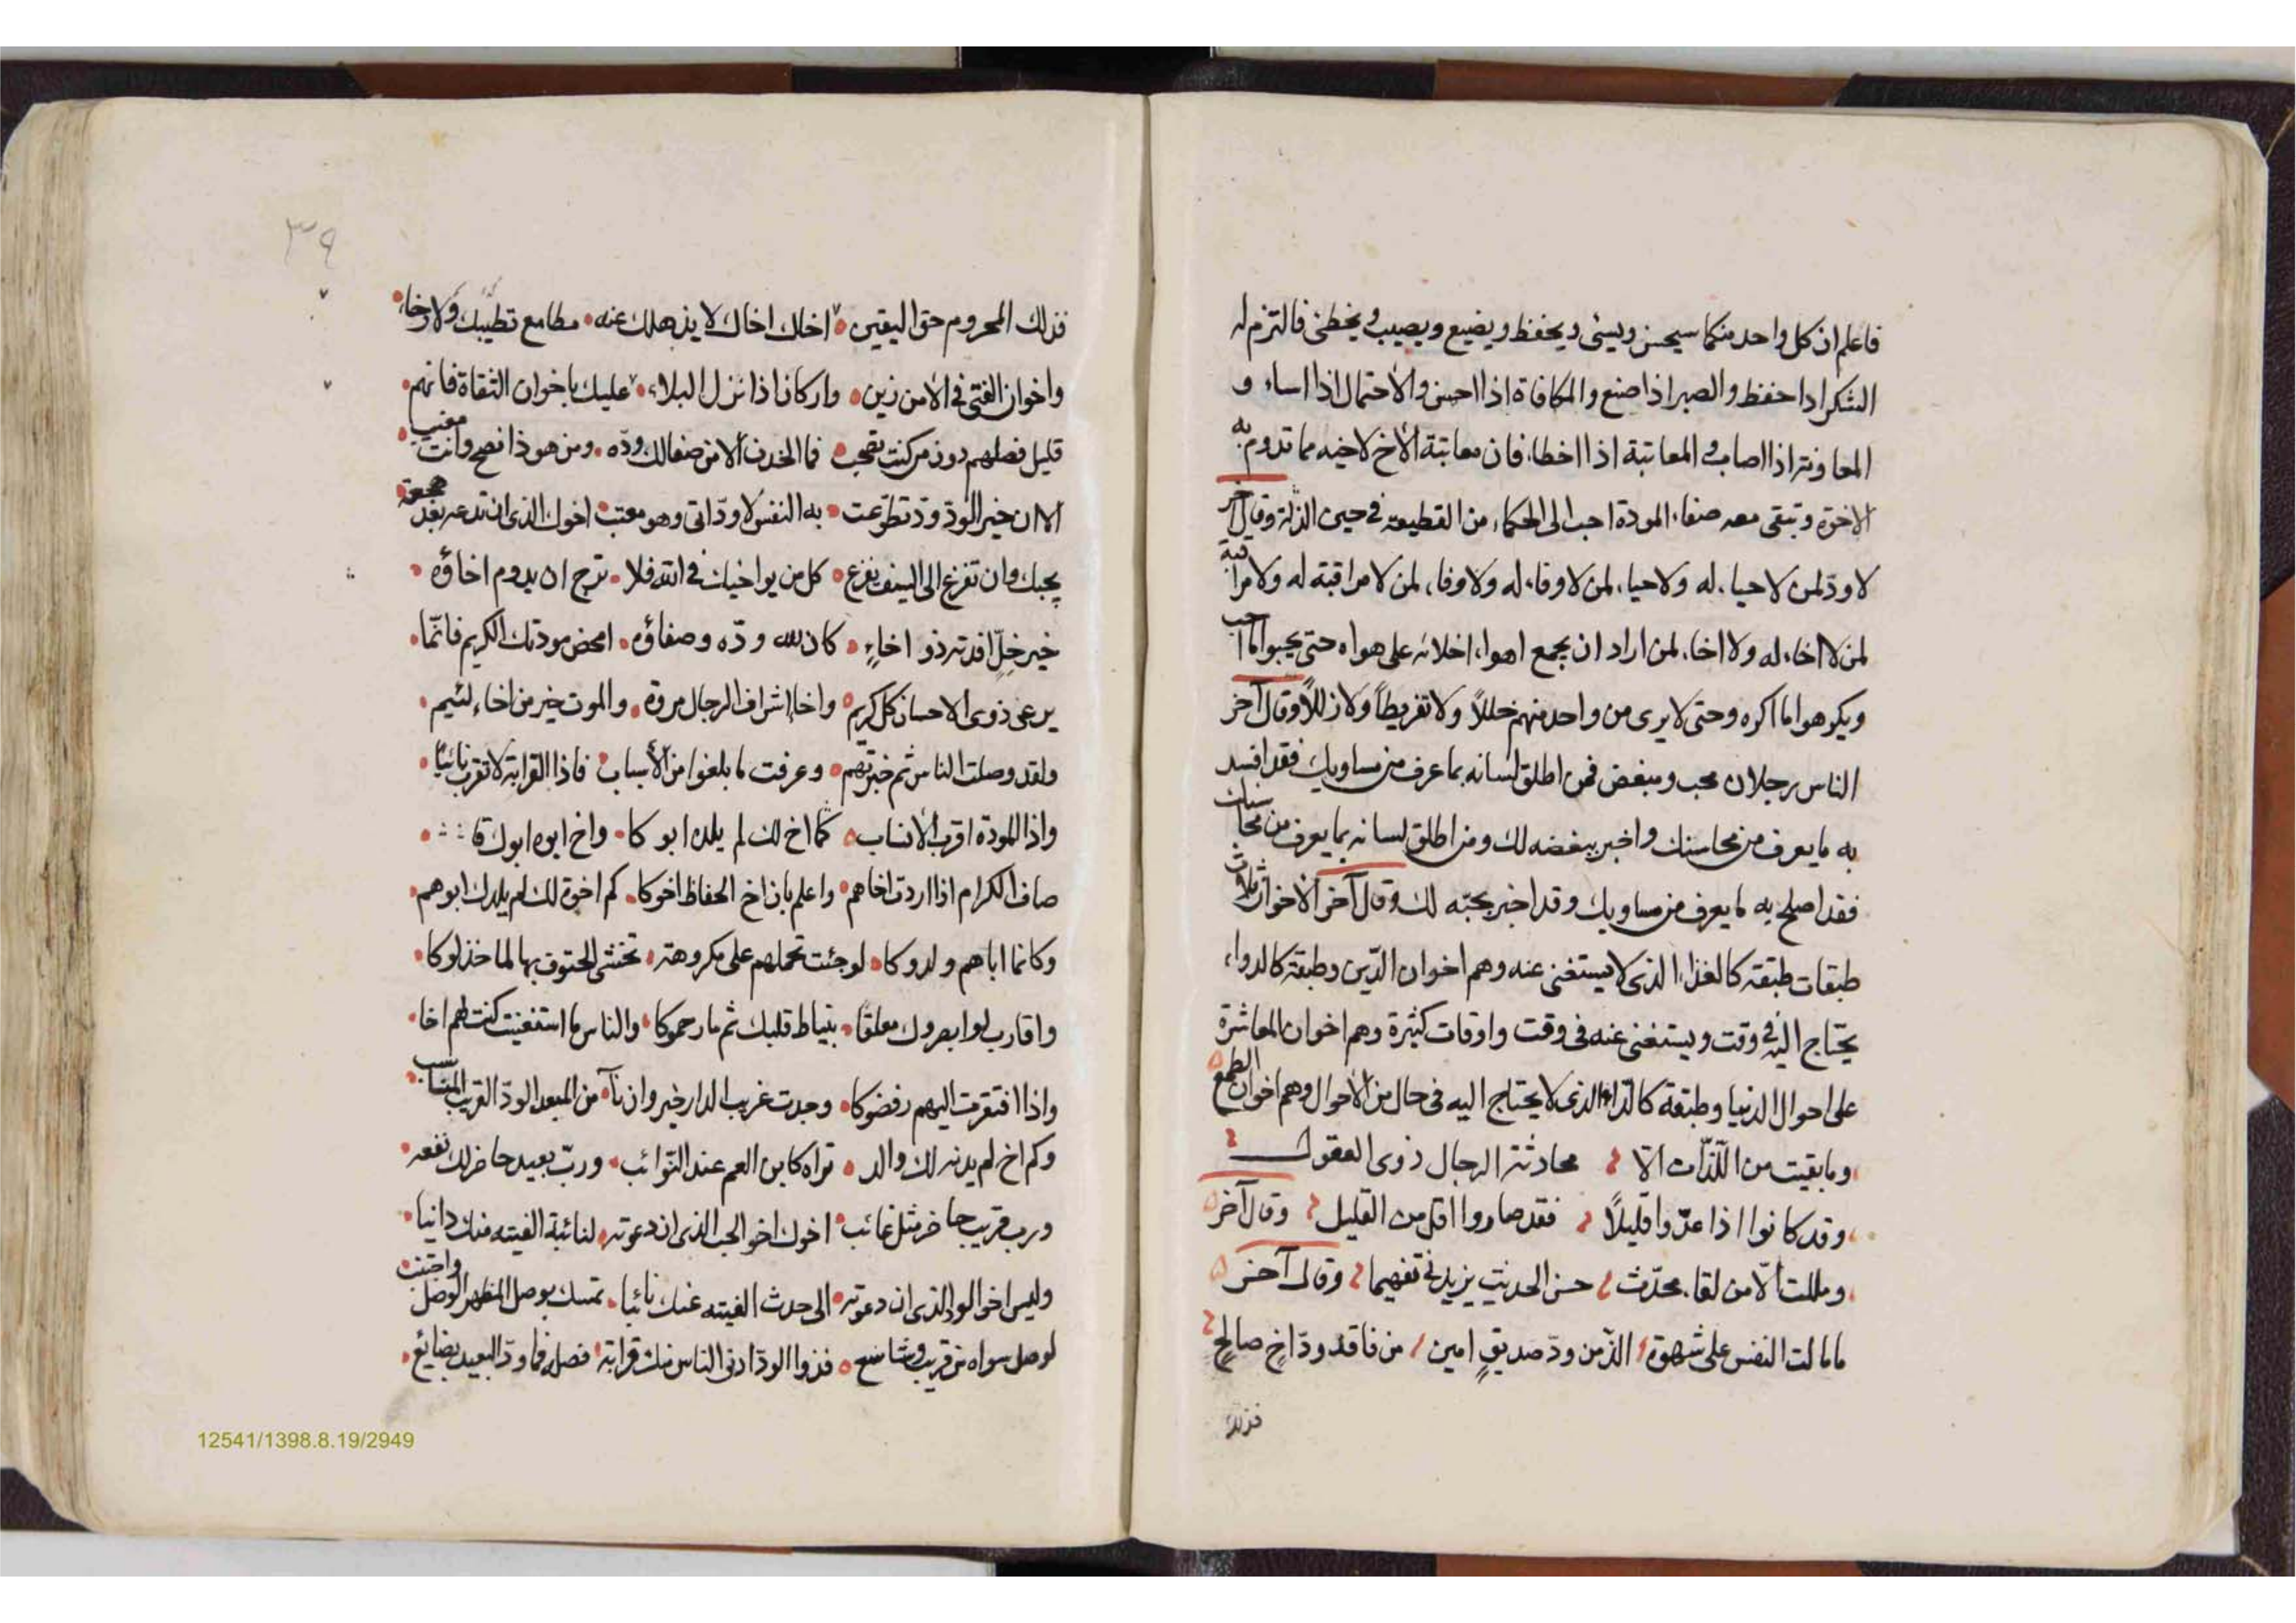 فاعلم ان كل واحد منكما سيحسن ويسئ ويحفظ ويضيع ويصيب ويخطئ فالتزم له
الشكر اذا حفظ والصبر اذا ضيع والمكافاة اذا احسن والاحتمال اذا اساء و
المعاونة اذا اصاب والمعاتبة اذا اخطا، فان معاتبة الاخ لاخيه مما تدوم به
الاخوة وتبقى معه صفاء المودة احب الى الحكماء من القطيعة في حين الذلة وقال آخر
لا ودّ لمن لا حياء له ولا حياء لمن لا وفاء له ولا وفاء لمن لا مراقبة له ولا مراقبة
لمن لا اخاء له ولا اخاء لمن اراد ان يجمع اهواء اخلائه على هواه حتى يحبوا ما احب
ويكرهوا ما اكره وحتى لا يرى من واحد منهم خللاً ولا تفريطاً ولا زللاً وقال آخر
الناس رجلان محب ومبغض فمن اطلق لسانه بما عرف من مساويك فقد افسد
به ما يعرف من محاسنك واخبر ببغضه لك ومن اطلق لسانه بما يعرف من محاسنك
فقد اصلح به ما يعرف من مساويك وقد اخبر بحبّه لك وقال آخر الاخوان ثلاث
طبقات طبقة كالغذاء الذى لا يستغنى عنه وهم اخوان الدّين وطبقة كالدواء
يحتاج اليه فى وقت ويستغنى عنه فى وقت واوقات كثيرة وهم اخوان المعاشرة
على احوال الدنيا وطبقة كالدّاء الذى لا يحتاج اليه فى حال من الاحوال وهم اخوان الطمع
وما بقيت من اللّذات الاّ محادثة الرجال ذوى العقول
وقد كانوا اذا عدّوا قليلاً فقد صاروا اقل من القليل وقال آخر
ومللت الاّ من لقاء محدّث حسن الحديث يزيدنى تفهيما وقال آخر
ما مالت النفس على شهوة الذّ من ودّ صديقٍ امين من فاته ودّ اخٍ صالحٍ
فذلك
٣٩
فذلك المحروم حق اليقين اخاك اخاك لا يذهلك عنه مطامع تطبيك ولا رخاء
واخوان الفتى فى الامن زين واركان اذا نزل البلاء عليك باخوان الثقاة فانهم
قليل فصلهم دون من كنت تصحب فما الخدن الا من صفا لك ودّه ومن هو ذا نصح وانت مغيب
الا ان خير الودّ ودّ تطوّعت به النفس لا ودّ اتى وهو معتب اخوك الذى ان تدعه بعد هجعة
يجبك وان تفزع الى السيف يفزع كل من يواخيك فى الله فلا ترج ان يدوم اخاؤه
خير خلّ افدته ذو اخاءٍ كان لله ودّه وصفاؤه امحض مودتك الكريم فانّما
يرعى ذوى الاحسان كل كريم واخا اشراف الرجال مروة والموت خير من اخاء لئيم
ولقد وصلت الناس ثم خبرتهم وعرفت ما بلغوا من الأسباب فاذا القرابة لا تقرب نائيا
واذا المودة اقرب الأنساب كم اخ لك لم يلده ابوكا واخ ابوه ابوك قد
صاف الكرام اذا اردت اخاهم واعلم بان اخ الحفاظ اخوكا كم اخوة لك لم يلدك ابوهم
وكانما اباهم ولدوكا لو جئت تحملهم على مكروهة تخشى الحتوف بها لما خذلوكا
واقارب لو ابصروك معلقا بنياط قلبك ثم ما رحموكا والناس ما استغنيت كنت لهم اخا
واذا افتقرت اليهم رفضوكا وجدت غريب الدار خير وان نآ من المبعد الودّ القريب المناسب
وكم اخ لم يدنه لك والد تراه كابن العم عند النوائب وربّ بعيد حاضر لك نفعه
ورب قريب حاضر مثل غائب اخوك اخو الحب الذى ان دعوته لنائبة الفيته منك دانيا
وليس اخو الود الذى ان دعوته الى حدث الفيته عنك نائيا تمسك بوصل المظهر الوصل واجتنب
لوصل سواه من قريب وشاسع فذو الودّ ادنى الناس منك قرابة فصله فما ودّ البعيد بضائع
12541/1398.8.19/2949